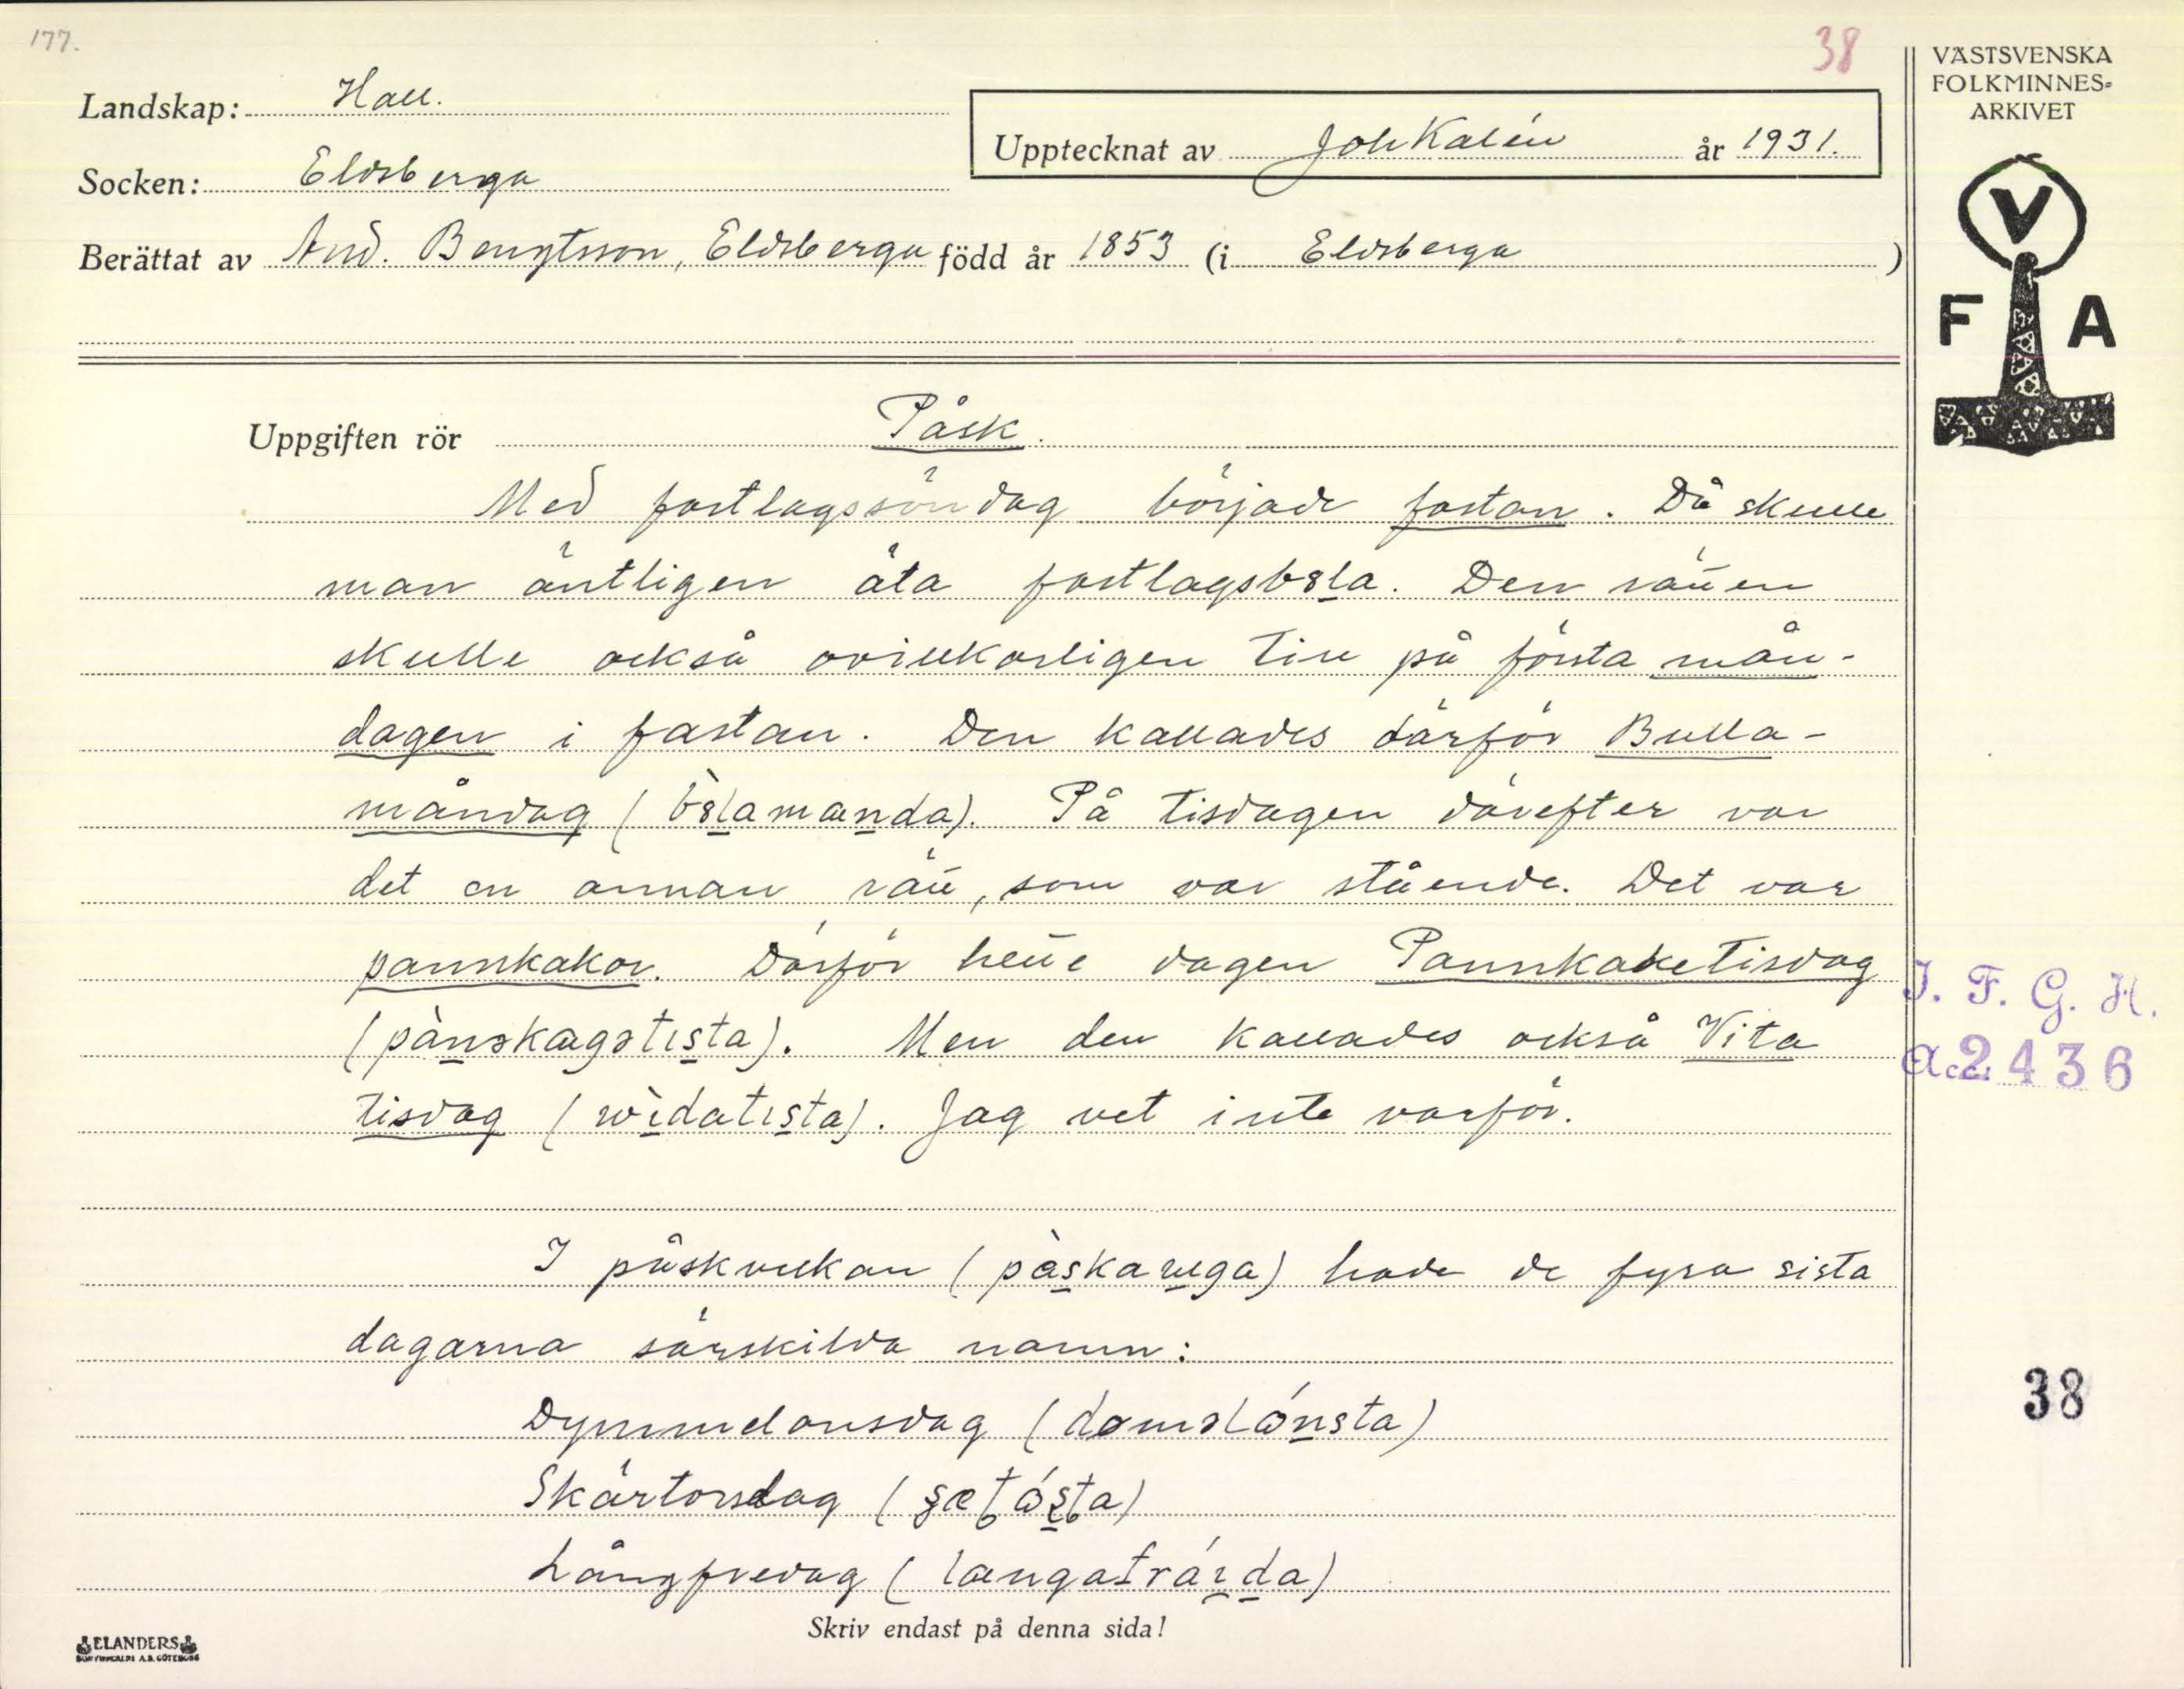 177.
38
VÄSTSVENSKA
FOLKMINNES=
ARKIVET
Landskap: Hall.
Upptecknat av Joh Kalén år 1931.
Socken: Eldsberga
Berättat av And. Bengtsson, Eldsberga född år 1853 (i Eldsberga )
V
F A
Uppgiften rör Påsk.
Med fastlagssöndag började fastan. Då skulle
man äntligen äta fastlagsb8la. Den rätten
skulle också ovillkorligen till på första mån-
dagen i fastan. Den kallades därför Bulla-
måndag (b8lamænda). På tisdagen därefter var
det en annan rätt, som var stående. Det var
pannkakor. Därför hette dagen Pannkaketisdag
(pànəkagətısta). Men den kallades också Vita
tisdag (wìdatısta). Jag vet inte varför.
I påskveckan (pàskawega) hade de fyra sista
dagarna särskilda namn:
Dymmelonsdag (dəməlónsta)
Skärtorsdag
Långfredag (længafráɪda)
J. F. G. H.
Acc. 2436
38
Skriv endast på denna sida!
ELANDERS
A.B. GÖTEBORG